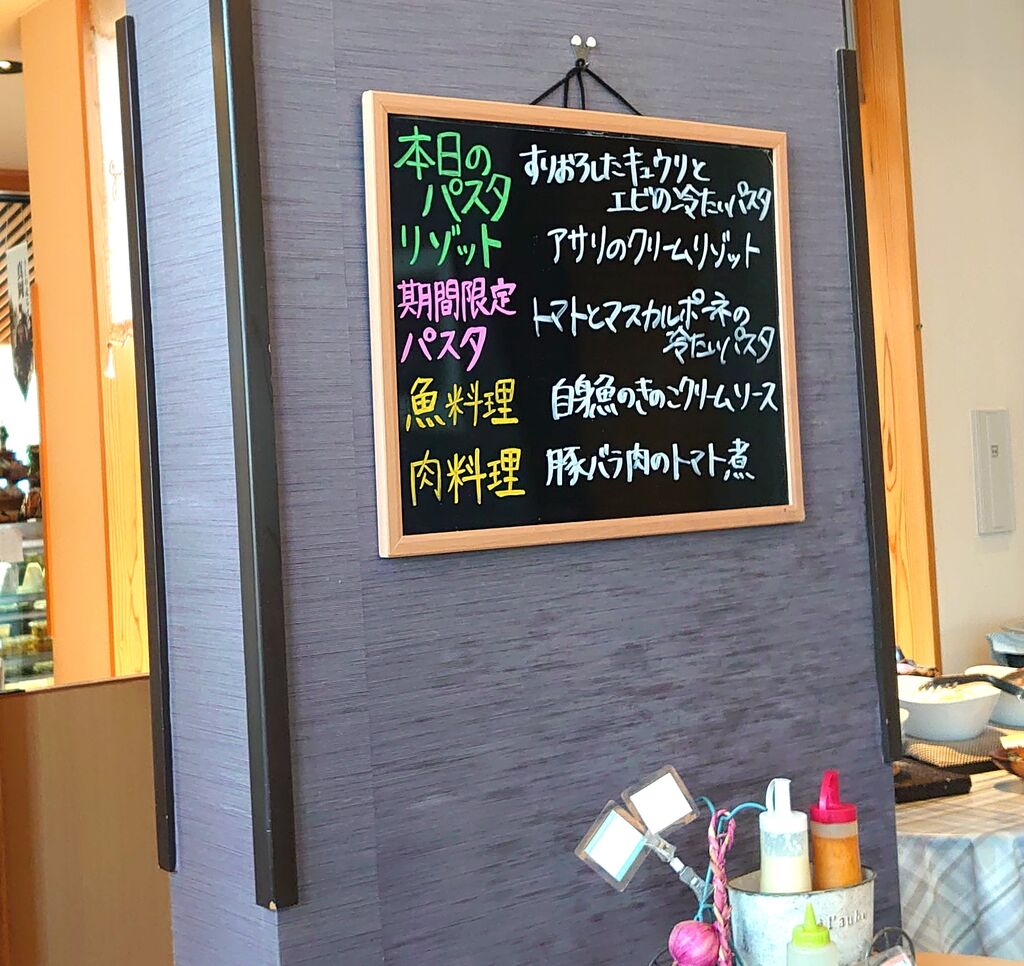 本日の
パスタ
すりおろしたキュウリと
エビの冷たいパスタ
リゾット
アサリのクリームリゾット
期間限定
パスタ
トマトとマスカルポーネの
冷たいパスタ
魚料理
自身魚のきのこクリームソース
肉料理
豚バラ肉のトマト煮
l'aube